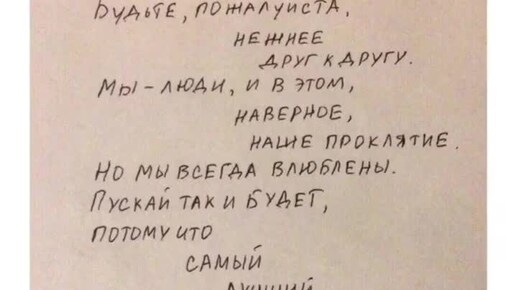 Будьте, пожалуйста,
нежнее
друг к другу.
Мы - люди, и в этом,
наверное,
наше проклятие.
Но мы всегда влюблены.
Пускай так и будет,
потому что
самый